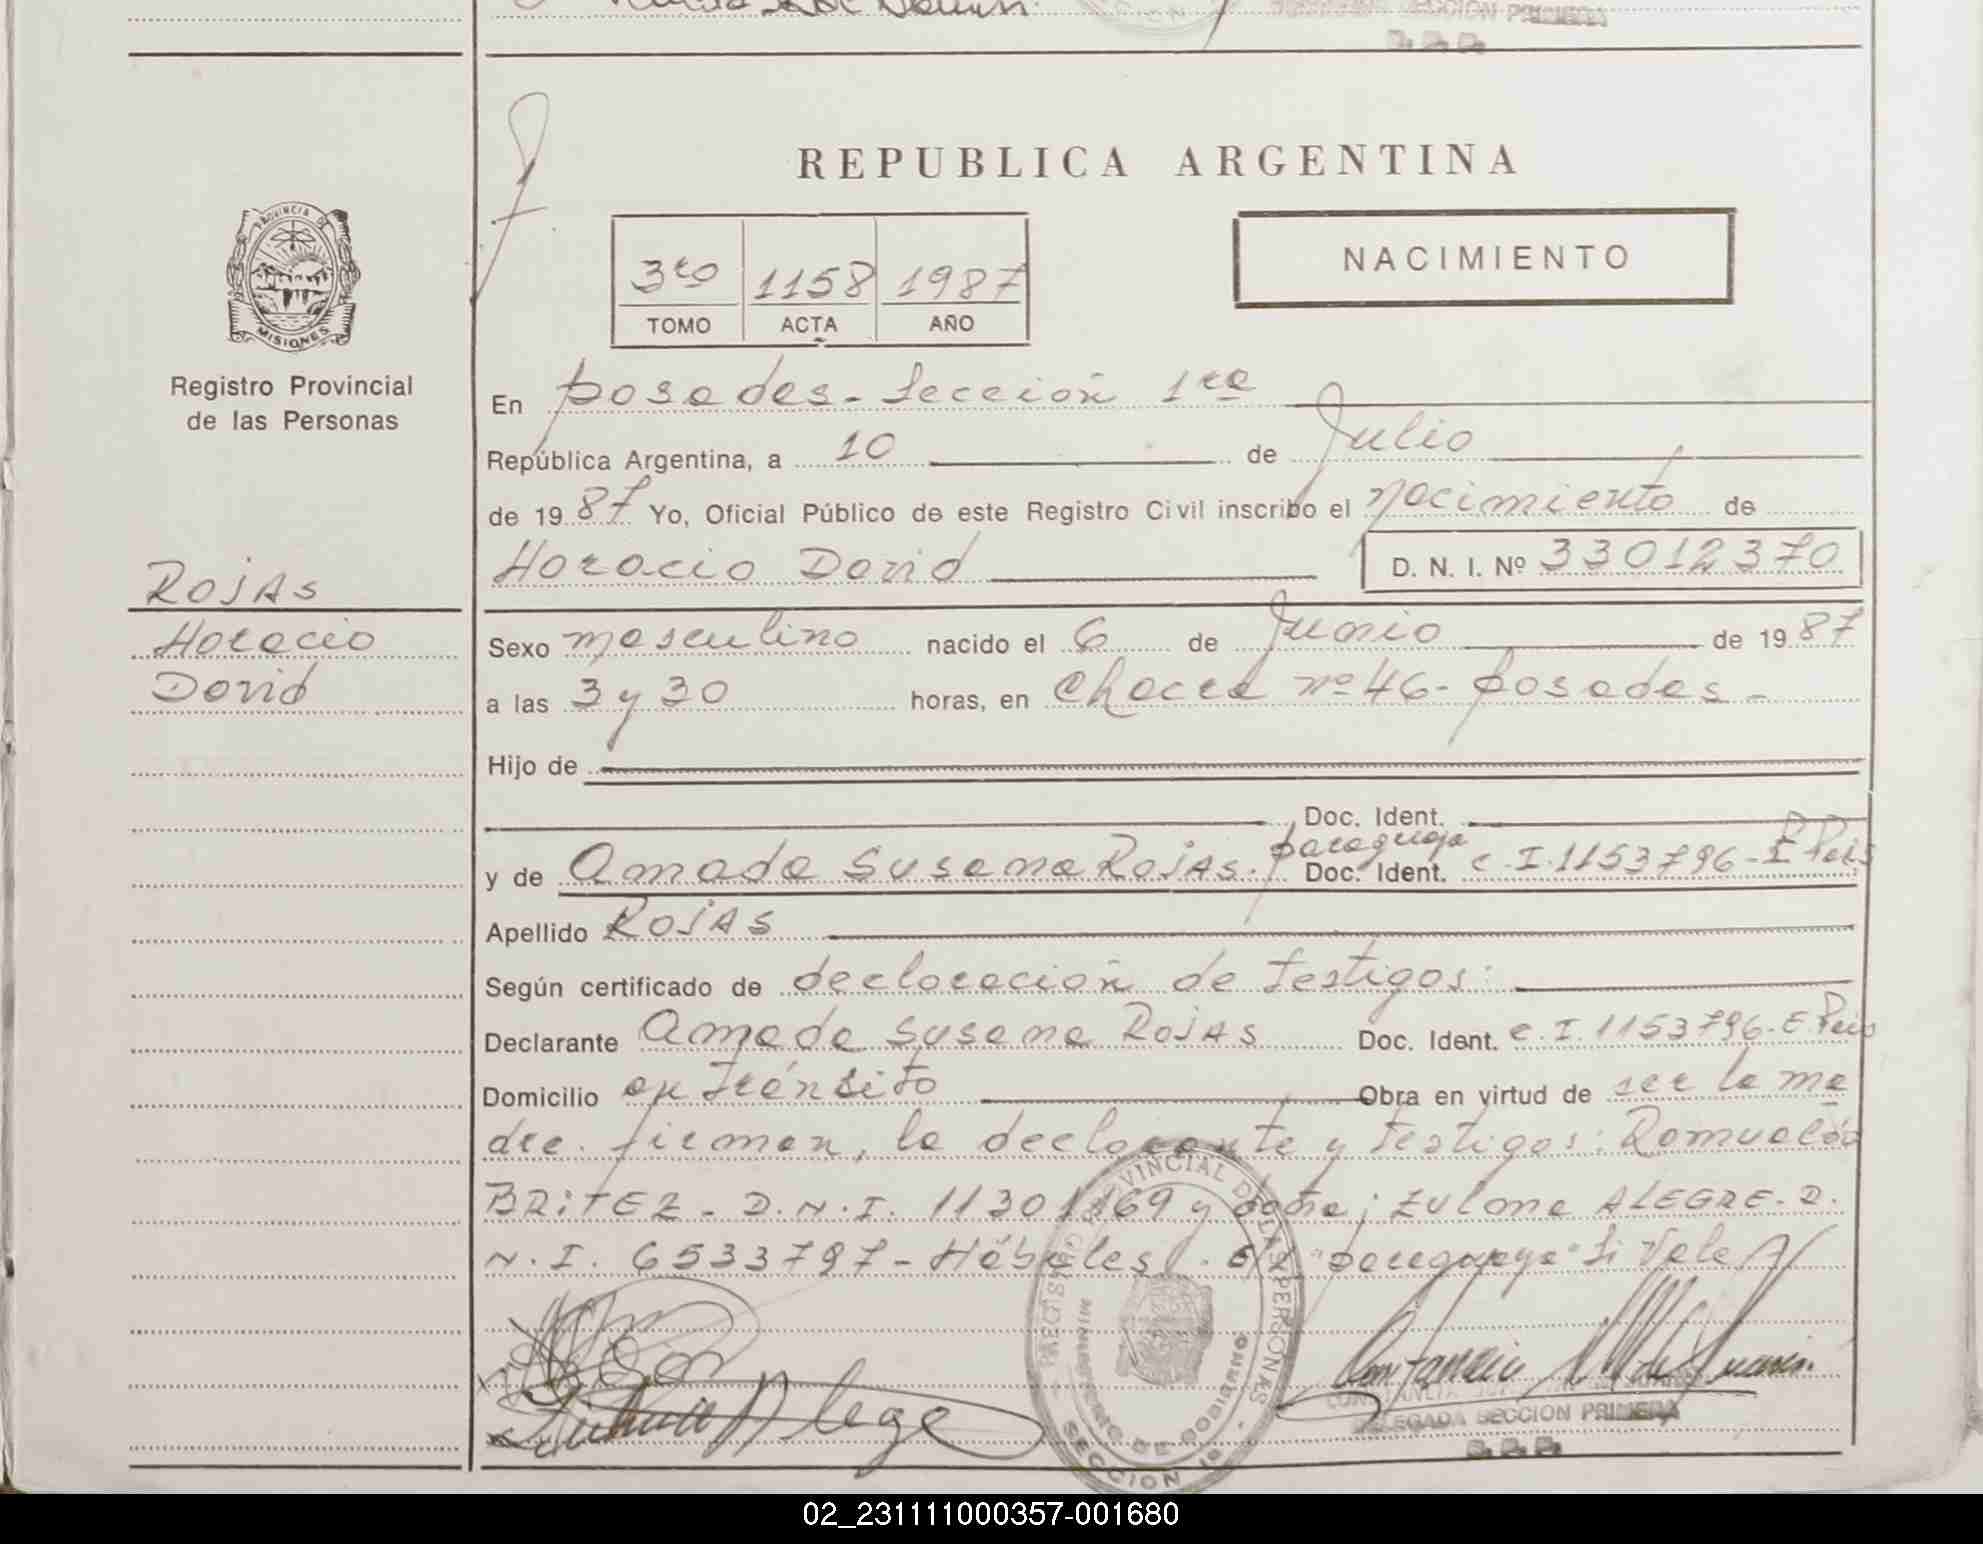 DELEGADA SECCION PRIMERA
R. P. P.
REPUBLICA ARGENTINA
PROVINCIA DE
MISIONES
Registro Provincial
de las Personas
3ro 1158 1987
TOMO ACTA AÑO
NACIMIENTO
En Posadas - Sección 1ra
República Argentina, a 10 de Julio
de 1987 Yo, Oficial Público de este Registro Civil inscribo el nacimiento de
Horacio David D. N. I. Nº 33012370
ROJAS
Horacio
David
Sexo masculino nacido el 6 de Junio de 1987
a las 3 y 30 horas, en Chacra nº 46 - Posadas -
Hijo de
Doc. Ident.
paraguaya
y de Amada Susana ROJAS. Doc. Ident. C.I. 1153796 - E País
Apellido ROJAS
Según certificado de declaración de testigos:
Declarante Amada Susana ROJAS Doc. Ident. C.I. 1153796 - E. País
Domicilio en tránsito Obra en virtud de ser la ma
dre. firman, la declarante y testigos: Romualdo
BRITEZ - D.N.I. 11301169 y doña; Zulma ALEGRE - D.
N.I. 6533797 - Hábiles. E/L "paraguaya" Si Vale
REGISTRO PROVINCIAL DE LAS PERSONAS
MINISTERIO DE GOBIERNO
SECCION 1a
DELEGADA SECCION PRIMERA
R. P. P.
02_231111000357-001680